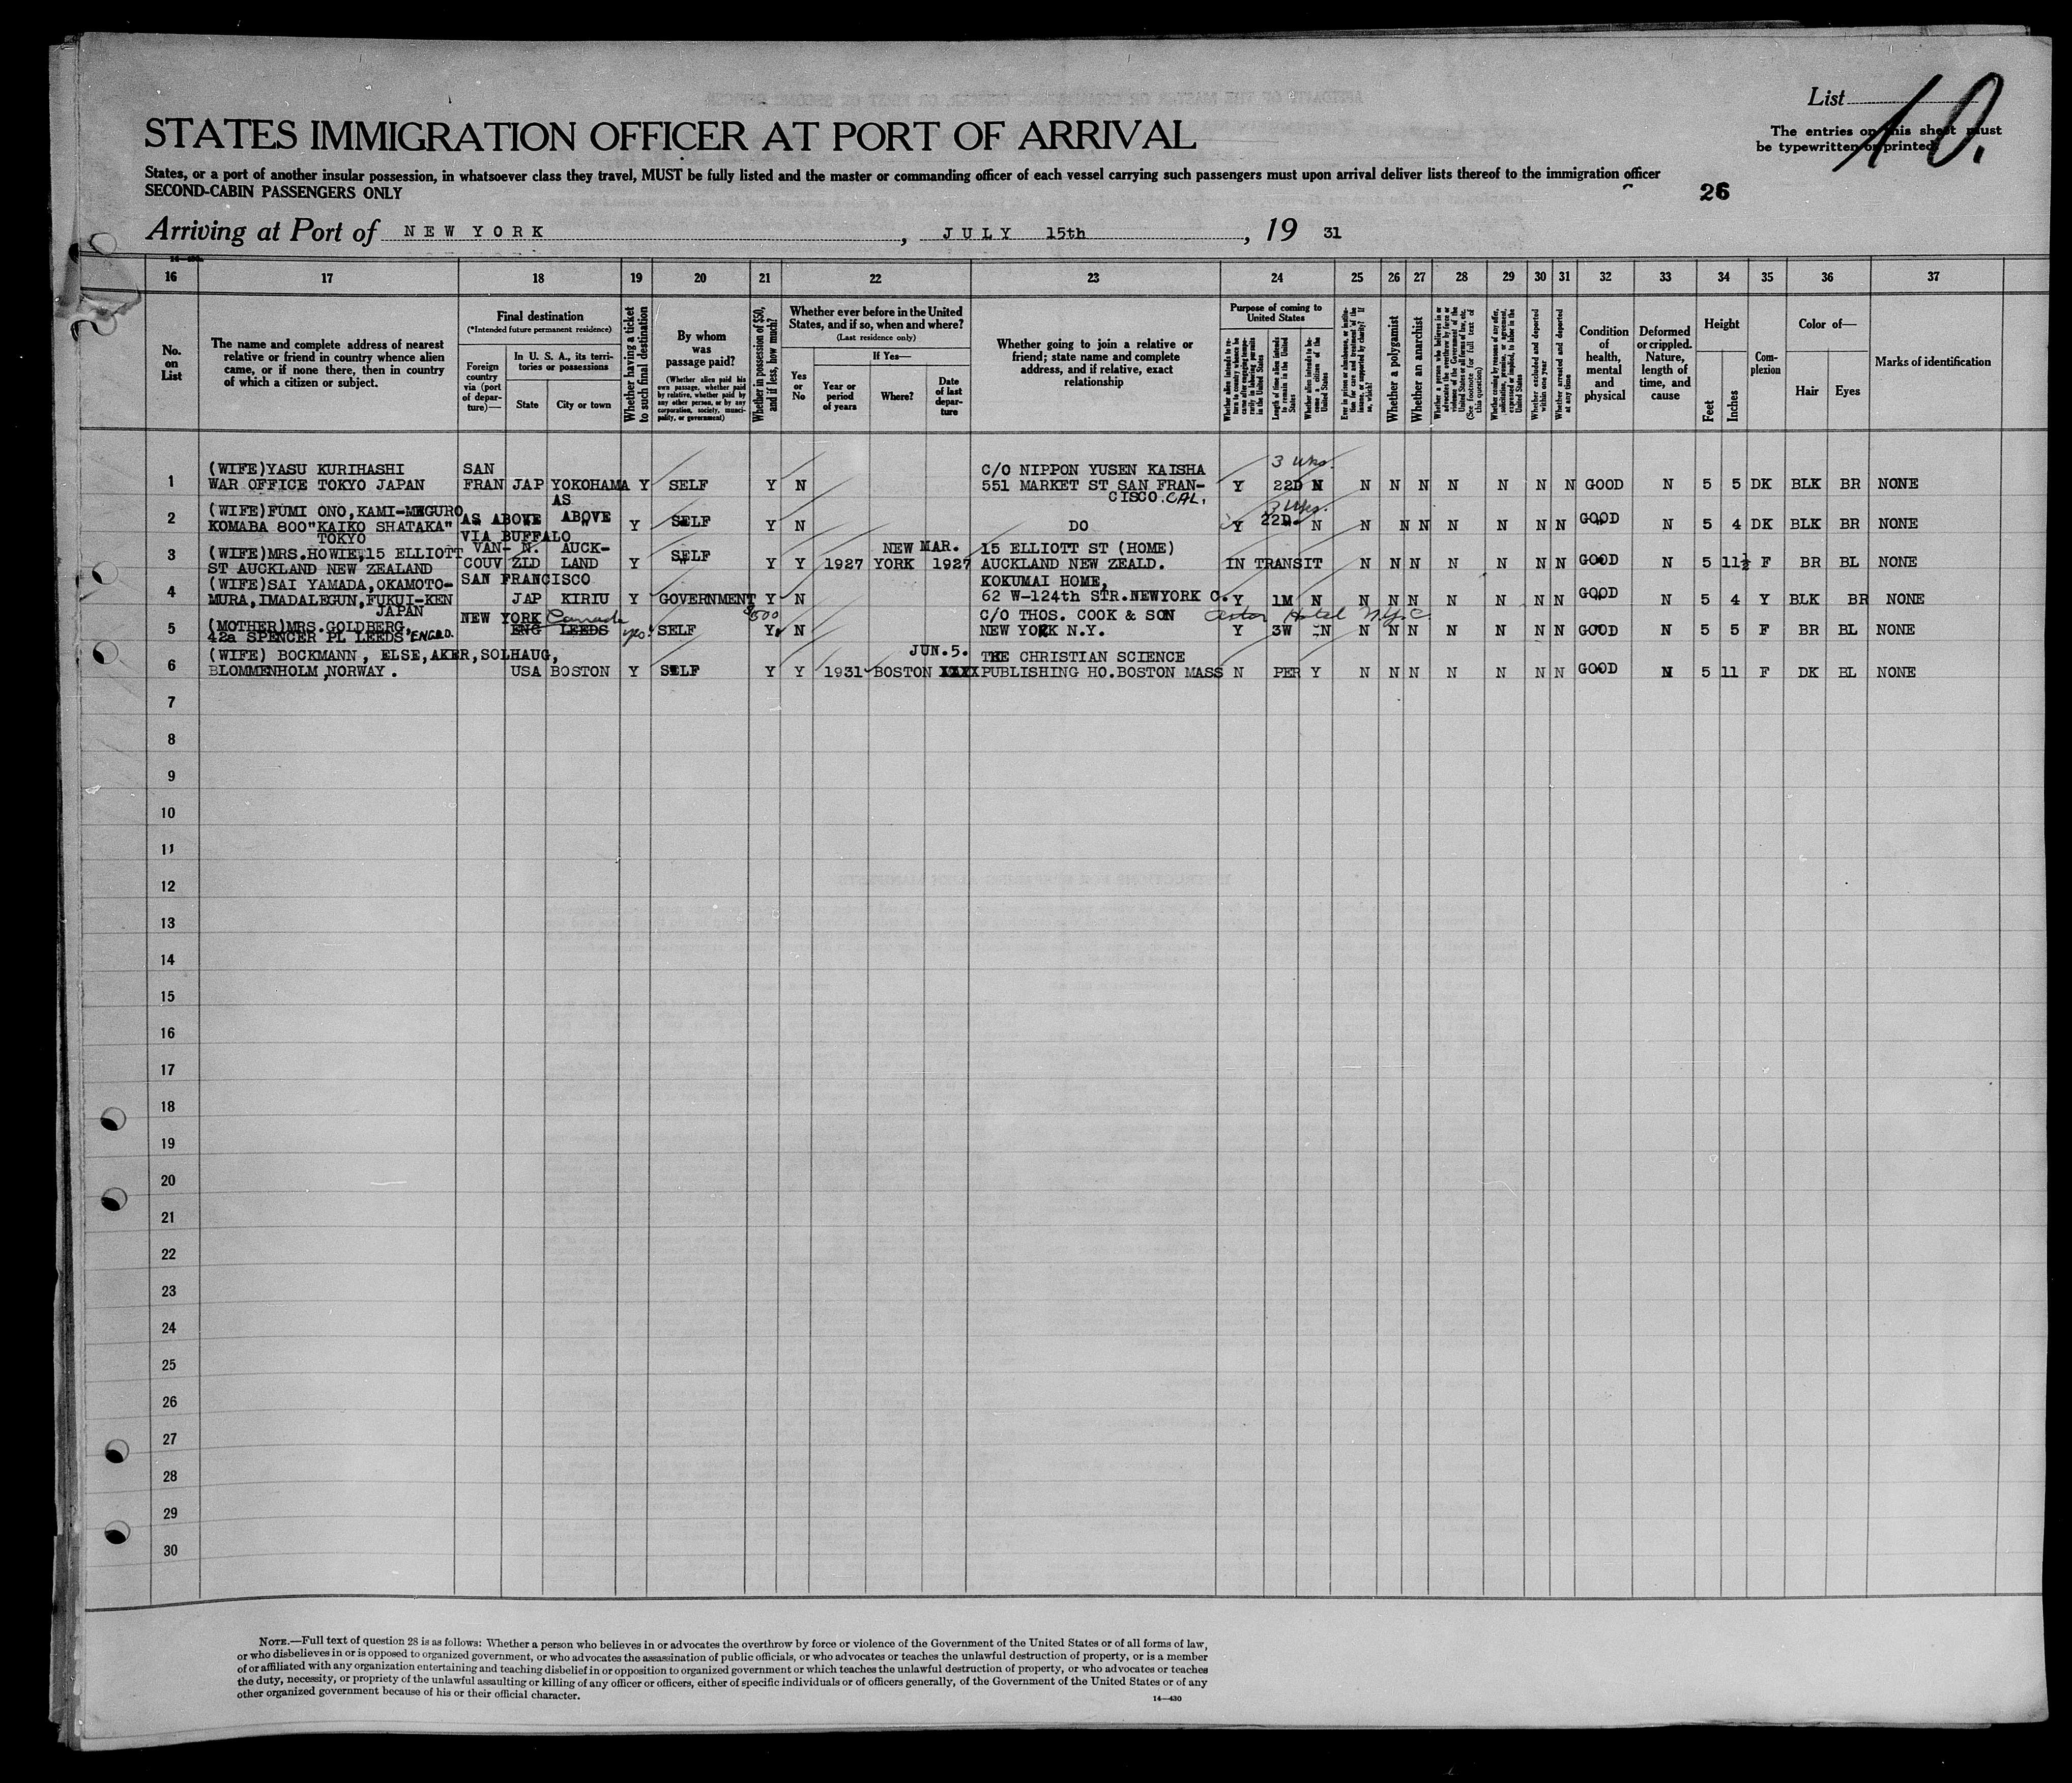 List 10.
STATES IMMIGRATION OFFICER AT PORT OF ARRIVAL
The entries on this sheet must
be typewritten or printed.
States, or a port of another insular possession, in whatsoever class they travel, MUST be fully listed and the master or commanding officer of each vessel carrying such passengers must upon arrival deliver lists thereof to the immigration officer
SECOND-CABIN PASSENGERS ONLY
26
Arriving at Port of NEW YORK, JULY 15th, 19 31
16 17 18 19 20 21 22 23 24 25 26 27 28 29 30 31 32 33 34 35 36 37
No. on List
The name and complete address of nearest
relative or friend in country whence alien
came, or if none there, then in country
of which a citizen or subject.
Final destination
(*Intended future permanent residence)
Foreign country via (port of departure)—
In U. S. A., its territories or possessions
State
City or town
Whether having a ticket to such final destination
By whom was passage paid?
(Whether alien paid his own passage, whether paid by relative, whether paid by any other person, or by any corporation, society, municipality, or government)
Whether in possession of $50, and if less, how much?
Whether ever before in the United States, and if so, when and where?
(Last residence only)
Yes or No
If Yes—
Year or period of years
Where?
Date of last departure
Whether going to join a relative or
friend; state name and complete
address, and if relative, exact
relationship
Purpose of coming to United States
Whether alien intends to return to country whence he came after engaging temporarily in laboring pursuits in the United States
Length of time alien intends to remain in the United States
Whether alien intends to become a citizen of the United States
Ever in prison or almshouse, or institution for care and treatment of the insane, or supported by charity? If so, which?
Whether a polygamist
Whether an anarchist
Whether a person who believes in or advocates the overthrow by force or violence of the Government of the United States or all forms of law, etc. (See footnote for full text of this question)
Whether coming by reasons of any offer, solicitation, promise, or agreement, expressed or implied, to labor in the United States
Whether excluded and deported within one year
Whether arrested and deported at any time
Condition of health, mental and physical
Deformed or crippled. Nature, length of time, and cause
Height
Feet
Inches
Complexion
Color of—
Hair
Eyes
Marks of identification
(WIFE)YASU KURIHASHI SAN C/O NIPPON YUSEN KAISHA 3 wks.
1 WAR OFFICE TOKYO JAPAN FRAN JAP YOKOHAMA Y SELF Y N 551 MARKET ST SAN FRAN- Y 22D N N N N N N N N GOOD N 5 5 DK BLK BR NONE
CISCO CAL.
(WIFE)FUMI ONO,KAMI-MEGURO AS 3 wks.
2 KOMABA 800"KAIKO SHATAKA" AS ABOVE ABOVE Y SELF Y N DO Y 22D N N N N N N N N GOOD N 5 4 DK BLK BR NONE
TOKYO VIA BUFFALO
(WIFE)MRS.HOWIE,15 ELLIOTT VAN- N. AUCK- NEW MAR. 15 ELLIOTT ST (HOME)
3 ST AUCKLAND NEW ZEALAND COUV ZLD LAND Y SELF Y Y 1927 YORK 1927 AUCKLAND NEW ZEALD. IN TRANSIT N N N N N N N GOOD N 5 11½ F BR BL NONE
(WIFE)SAI YAMADA,OKAMOTO- SAN FRANCISCO KOKUMAI HOME,
4 MURA,IMADALEGUN,FUKUI-KEN JAP KIRIU Y GOVERNMENT Y N 62 W-124th STR.NEWYORK C. Y 1M N N N N N N N N GOOD N 5 4 Y BLK BR NONE
JAPAN
(MOTHER)MRS.GOLDBERG, NEW YORK Canada $500 C/O THOS. COOK & SON Astor Hotel N.Y.C.
5 42a SPENCER PL LEEDS ENGLD. ENG LEEDS yes SELF Y N NEW YORK N.Y. Y 3W N N N N N N N N GOOD N 5 5 F BR BL NONE
(WIFE) BOCKMANN, ELSE,AKER,SOLHAUG, JUN.5. THE CHRISTIAN SCIENCE
6 BLOMMENHOLM,NORWAY. USA BOSTON Y SELF Y Y 1931 BOSTON XXXX PUBLISHING HO.BOSTON MASS N PER Y N N N N N N N GOOD N 5 11 F DK BL NONE
7
8
9
10
11
12
13
14
15
16
17
18
19
20
21
22
23
24
25
26
27
28
29
30
NOTE.—Full text of question 28 is as follows: Whether a person who believes in or advocates the overthrow by force or violence of the Government of the United States or of all forms of law,
or who disbelieves in or is opposed to organized government, or who advocates the assassination of public officials, or who advocates or teaches the unlawful destruction of property, or is a member
of or affiliated with any organization entertaining and teaching disbelief in or opposition to organized government or which teaches the unlawful destruction of property, or who advocates or teaches
the duty, necessity, or propriety of the unlawful assaulting or killing of any officer or officers, either of specific individuals or of officers generally, of the Government of the United States or of any
other organized government because of his or their official character.
14—430